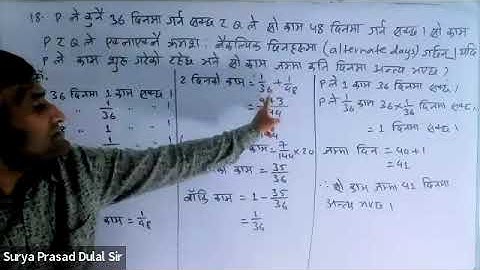 18. P ले कुनै 36 दिनमा गर्न सक्छ र Q ले सो काम 48 दिनमा गर्न सक्छ । सो काम
P र Q ले एकान्तर क्रमशः वैकल्पिक दिनहरूमा (alternate days) गर्छन् । यदि
P ले काम शुरू गरेको रहेछ भने सो काम जम्मा कति दिनमा अन्त्य भएछ ?
36 दिनमा 1 काम सक्छ ।
" 1/36 " " ।
काम = 1/48
2 दिनको काम = 1/36 + 1/48
काम = 7/144 × 20
काम = 35/36
बाँकि काम = 1 - 35/36
= 1/36
P ले 1 काम 36 दिनमा सक्छ ।
P ले 1/36 काम 36 × 1/36 दिनमा सक्छ ।
= 1 दिनमा सक्छ ।
जम्मा दिन = 40 + 1
= 41
∴ सो काम जम्मा 41 दिनमा
अन्त्य भएछ ।
Surya Prasad Dulal Sir